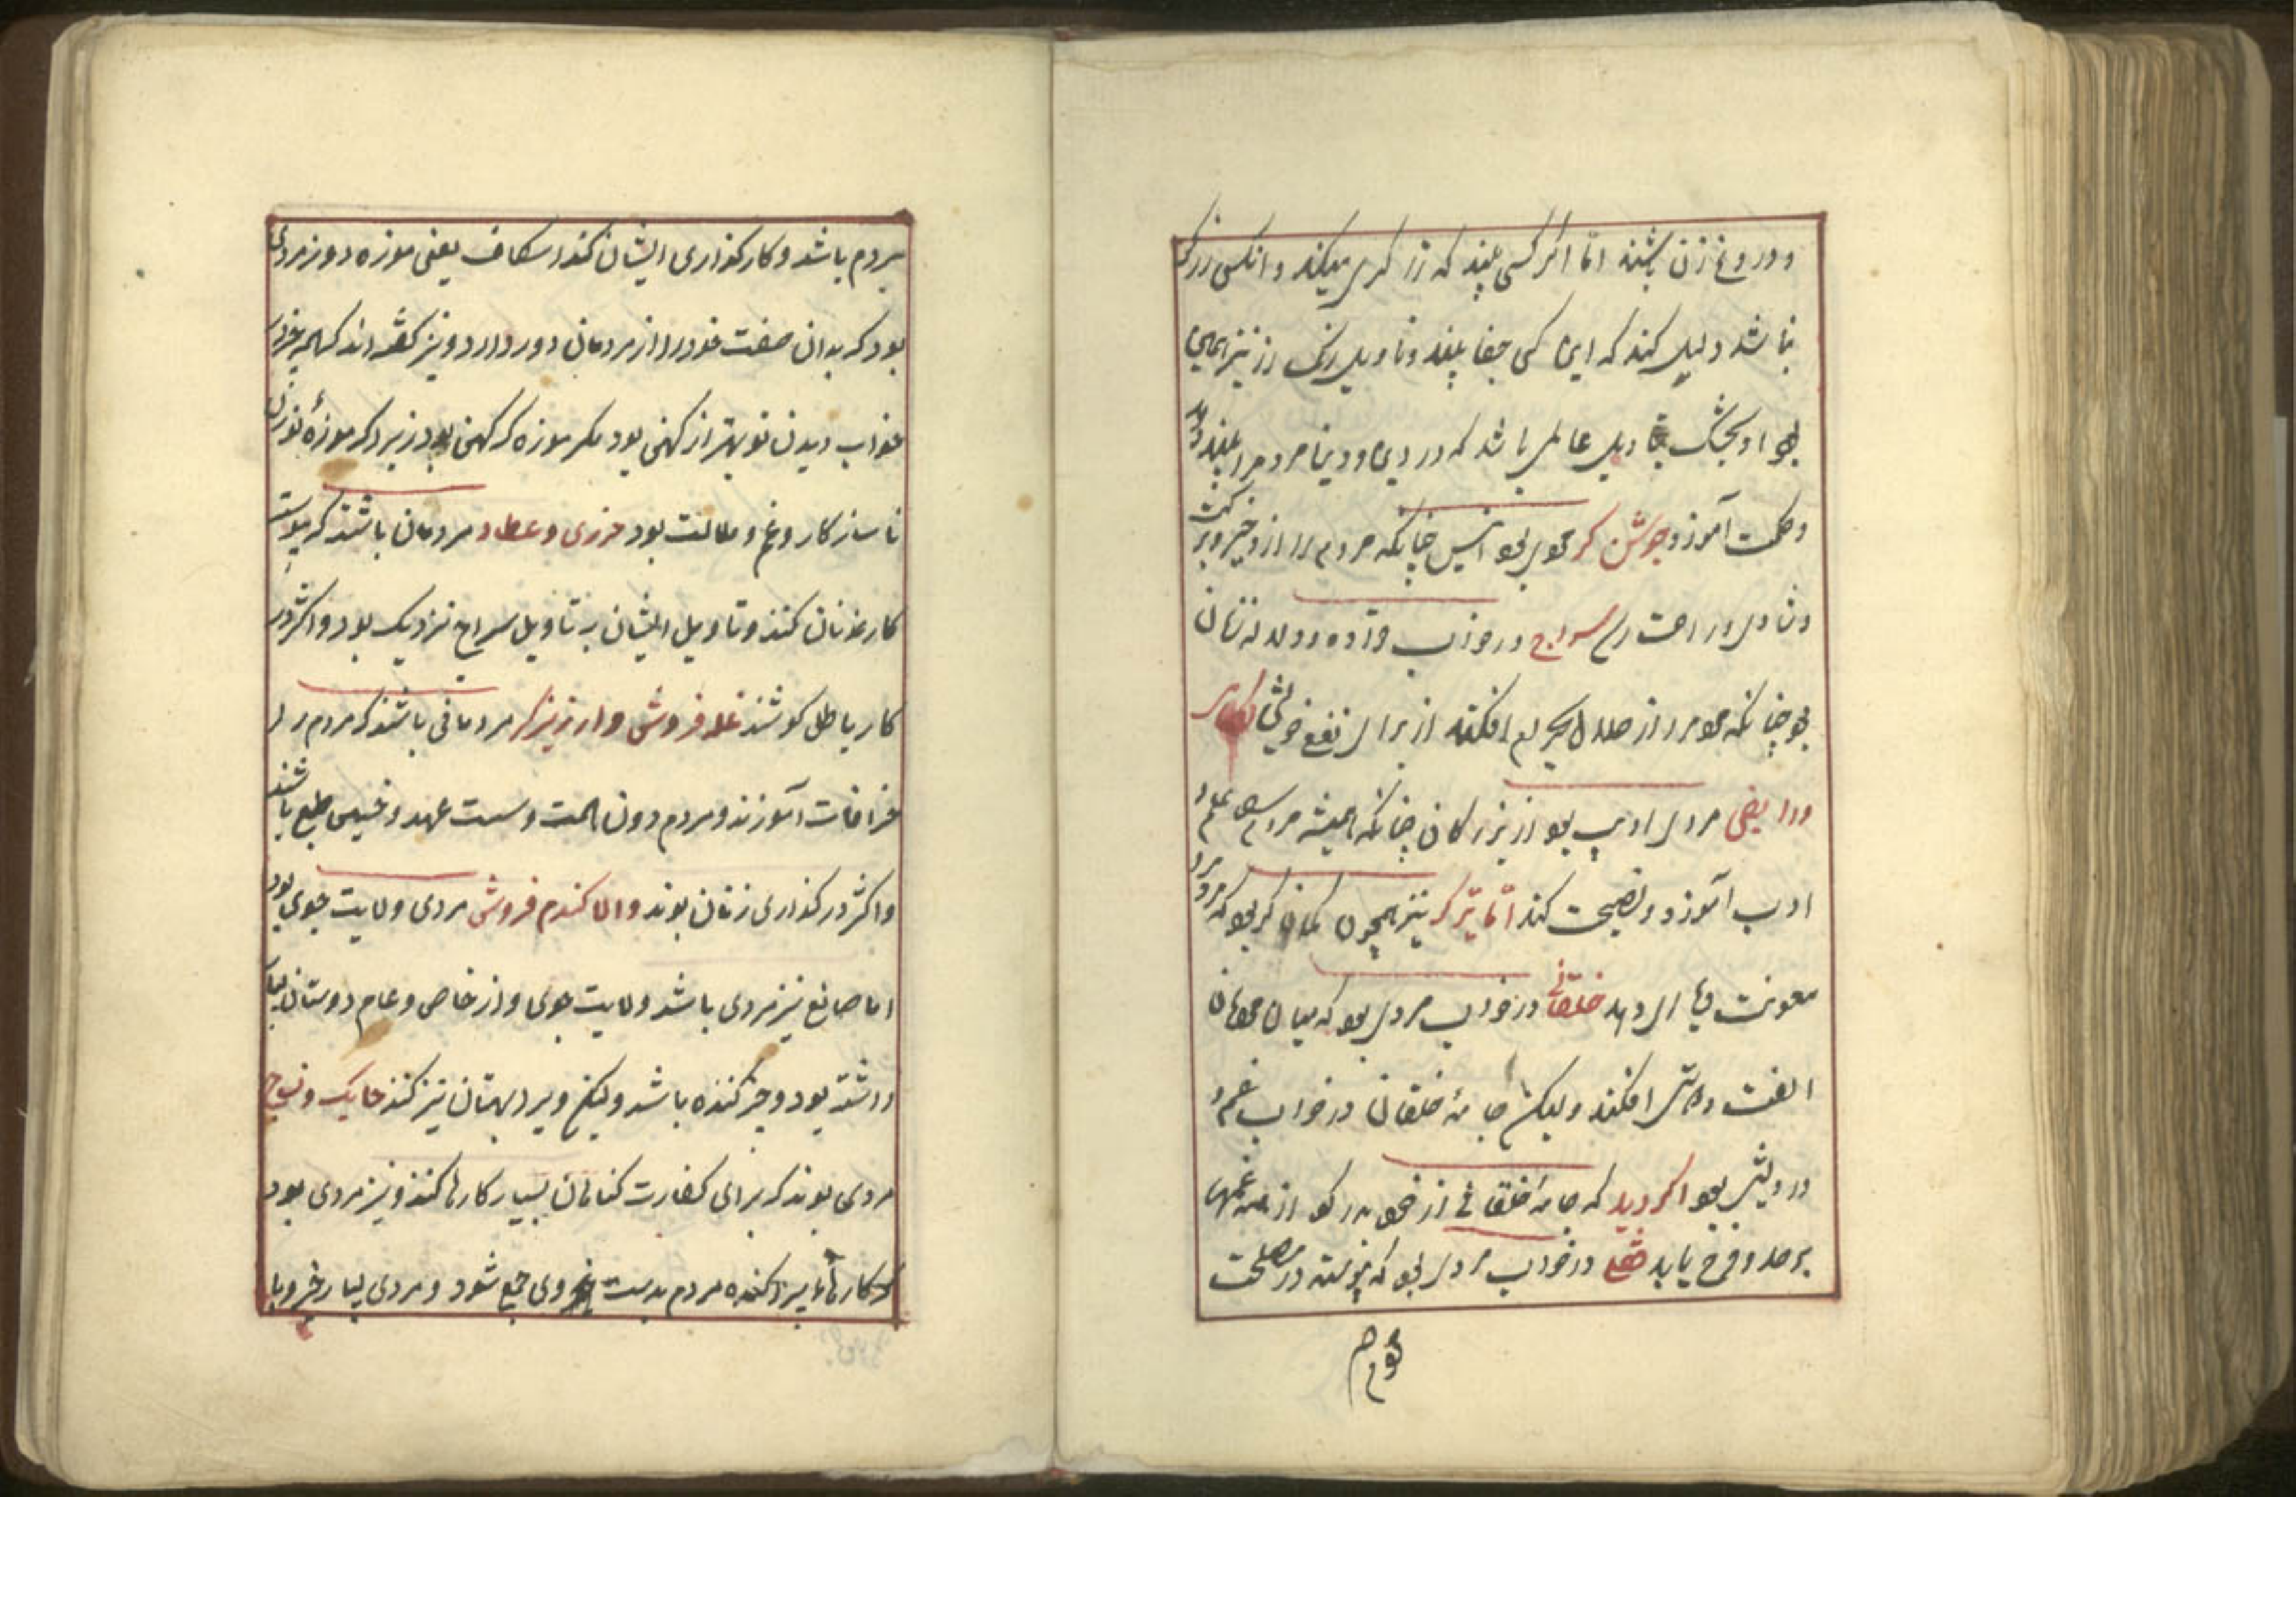 و دروغ زن باشند اما اگر کسی بیند که زرگری میکند و انکس زرگر
نباشد دلیل کند که این کس جفا بیند و تاویل رنگ رز نیز همین
بود و تاویل عالمی باشد که در دین و دنیا مردم را پند دهد
و حکمت آموزد جوشن گر مردی بود انیس چنانکه مردم را ازو خیر و برکت
و شادی و راحت رسد سراج در خواب و دلاله زنان
بود چنانکه مردم را از حلال بحرام افکند از برای نفع خویش
و رایض مردی ادیب بود از بزرگان چنانکه همیشه مردم را علم و
ادب آموزد و نصیحت کند اما تیرگر نیز همچون کمان گر بود که مردم را
معونت و یاری دهد خلقانی در خواب مردی بود که میان مردمان
الفت و دوستی افکند و لیکن جامهٔ خلقان در خواب غم و
درویشی بود اگر دید که جامهٔ خلقانی از خود بدر کرد از همه غمها
برهد و فرح یابد در خواب مردی بود که پیوسته در مصلحت
مردم
بردم باشد و کارگذاری ایشان کند اسکاف یعنی موزه دوز مردی
بود که بدان صفت خود را از مردمان دور دارد و نیز گفته اند که همه چیز در
خواب دیدن نو بهتر از کهنی بود مگر موزه که کهن بهتر بود زیرا که موزهٔ نو زن
ناسازکار و غم و ملالت بود خرزی و عطار مردمان باشند که پیوسته
کار زنان کنند و تاویل ایشان به تاویل سراج نزدیک بود و اکثر در
کار باطل کوشند غله فروش و ارزیزگر مردمانی باشند که مردم را
خرافات آموزند و مردم دون همت و سست عهد و خسیس طبع باشند
و اکثر در کذاری زنان بوند و اما کندم فروش مردی ولایت جوی بود
اما صانع نیز مردی باشد ولایت جوی و از خاص و عام دوستان بسیار
داشته بود و خیر کننده باشد و لیکن ویرا بهتان نیز کنند حایک و نساج
مردمی بوند که برای کفارت کناهان بسیار کارها کنند و نیز مردی بود
که کارهای پراکنده مردم بدست وی جمع شود و مردی بسیار خیر و با